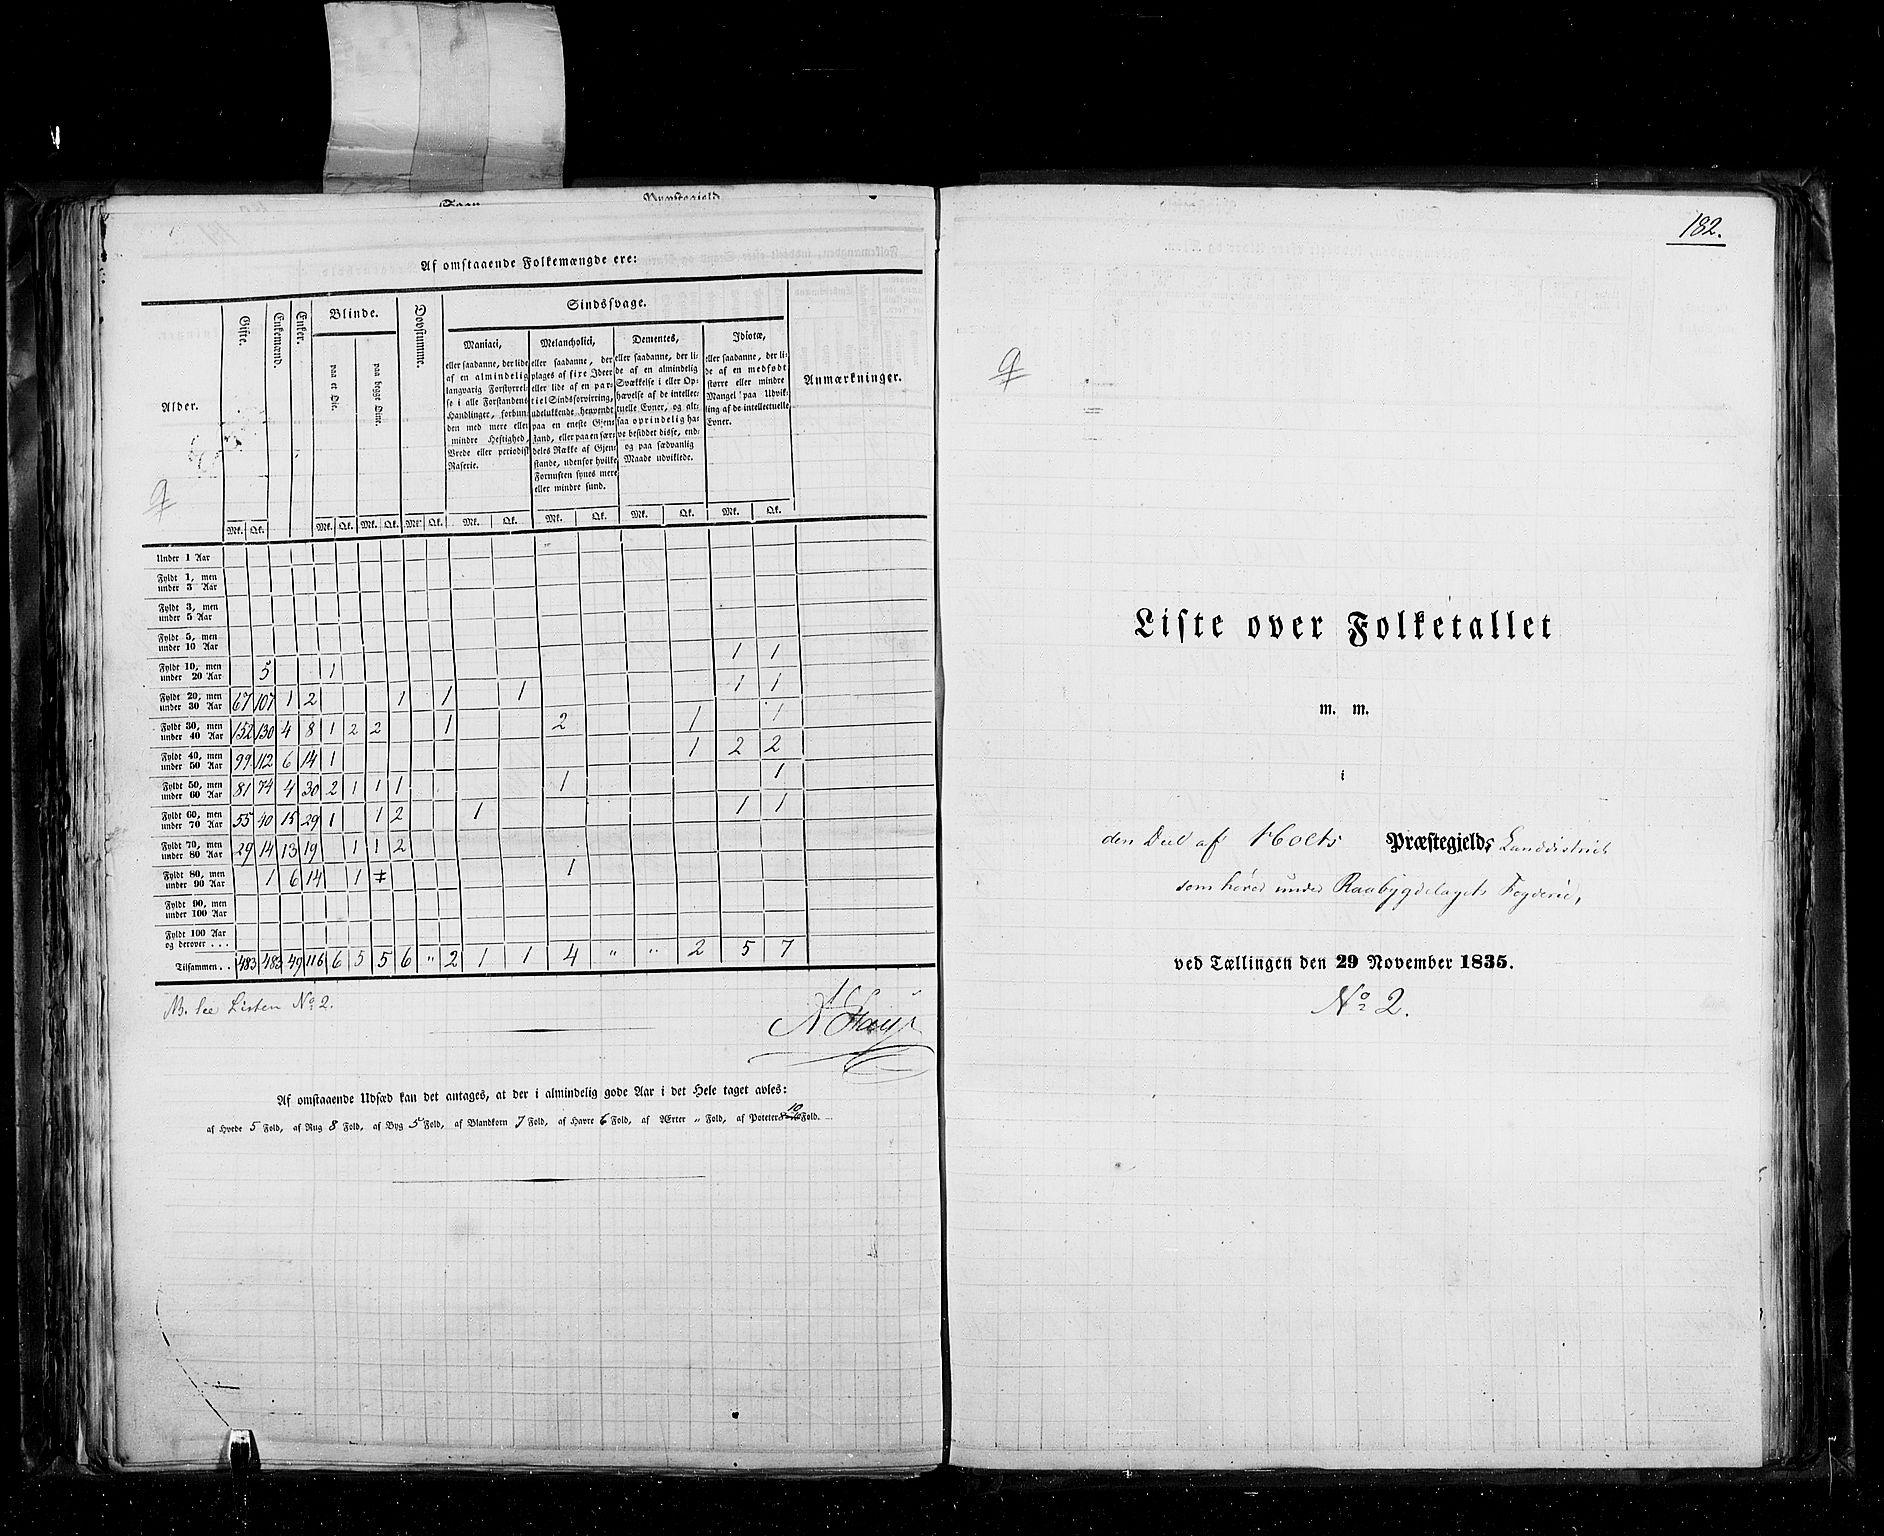 Af omstaaende Folkemængde ere:
Alder.
Gifte.
Enkemænd.
Enker.
Blinde.
paa et Øie.
paa begge Øine.
Døvstumme.
Sindssvage.
Maniaci,
eller saadanne, der lide
af en almindelig
langvarig Forstyrrel-
se i alle Forstandens
Handlinger, forbun-
den med mere eller
mindre Heftighed,
Vrede eller periodisk
Raserie.
Melancholici,
eller saadanne, der
plages af fixe Ideer
eller lide af en par-
tiel Sindsforvirring,
udelukkende henvendt
paa en eneste Gjen-
stand, eller paa en sær-
deles Række af Gjen-
stande, udenfor hvilke
Fornuften synes mere
eller mindre sund.
Dementes,
eller saadanne, der li-
de af en almindelig
Svækkelse i eller Op-
hævelse af de intellec-
tuelle Evner, og alt-
saa oprindelig ha-
ve besiddet disse, end-
og paa sædvanlig
Maade udviklede.
Idiotæ,
eller saadanne, der li-
de af en medfødt
større eller mindre
Mangel paa Udvik-
ling af de intellectuelle
Evner.
Anmærkninger.
Mk. Qk. Mk. Qk. Mk. Qk. Mk. Qk. Mk. Qk. Mk. Qk. Mk. Qk. Mk. Qk.
Under 1 Aar
Fyldt 1, men
under 3 Aar
Fyldt 3, men
under 5 Aar
Fyldt 5, men
under 10 Aar 1 1
Fyldt 10, men
under 20 Aar 5 1 1 1
Fyldt 20, men
under 30 Aar 67 107 1 2 1 1 1 1
Fyldt 30, men
under 40 Aar 152 130 4 8 1 2 2 1 2 1
Fyldt 40, men
under 50 Aar 99 112 6 14 1 1 2 2
Fyldt 50, men
under 60 Aar 81 74 4 30 2 1 1 1 1 1
Fyldt 60, men
under 70 Aar 55 40 15 29 1 1 2 1 1 1
Fyldt 70, men
under 80 Aar 29 14 13 19 1 1 2
Fyldt 80, men
under 90 Aar 1 6 14 1 1
Fyldt 90, men
under 100 Aar
Fyldt 100 Aar
og derover . . .
Tilsammen . . 483 483 49 116 6 5 5 6 " 2 1 1 4 " " 2 5 7
NB. see Listen No 2.
Af omstaaende Udsæd kan det antages, at der i almindelig gode Aar i det Hele taget avles:
af Hvede 5 Fold, af Rug 8 Fold, af Byg 5 Fold, af Blandkorn 7 Fold, af Havre 6 Fold, af Ærter " Fold, af Poteter 10 Fold.
182.
Liste over Folketallet
m. m.
i
den Deel af Holts Præstegjelds Landdistrict
som hører under Raabygdelagets Fogderie,
ved Tællingen den 29 November 1835.
No 2.